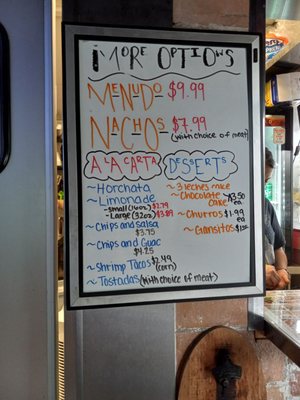 MORE OPTIONS
MENUDO $9.99
NACHOS $7.99
(with choice of meat)
A LA CARTA
~Horchata
~Limonade
~small (16oz) $2.79
~Large (32oz) $3.89
~Chips and salsa
$3.75
~Chips and Guac
$4.25
~Shrimp Tacos $2.49
(corn)
~Tostadas (with choice of meat)
DESSERTS
~3 leches cake
~Chocolate cake
$3.50 ea
~Churros $1.99
ea
~Gansitos